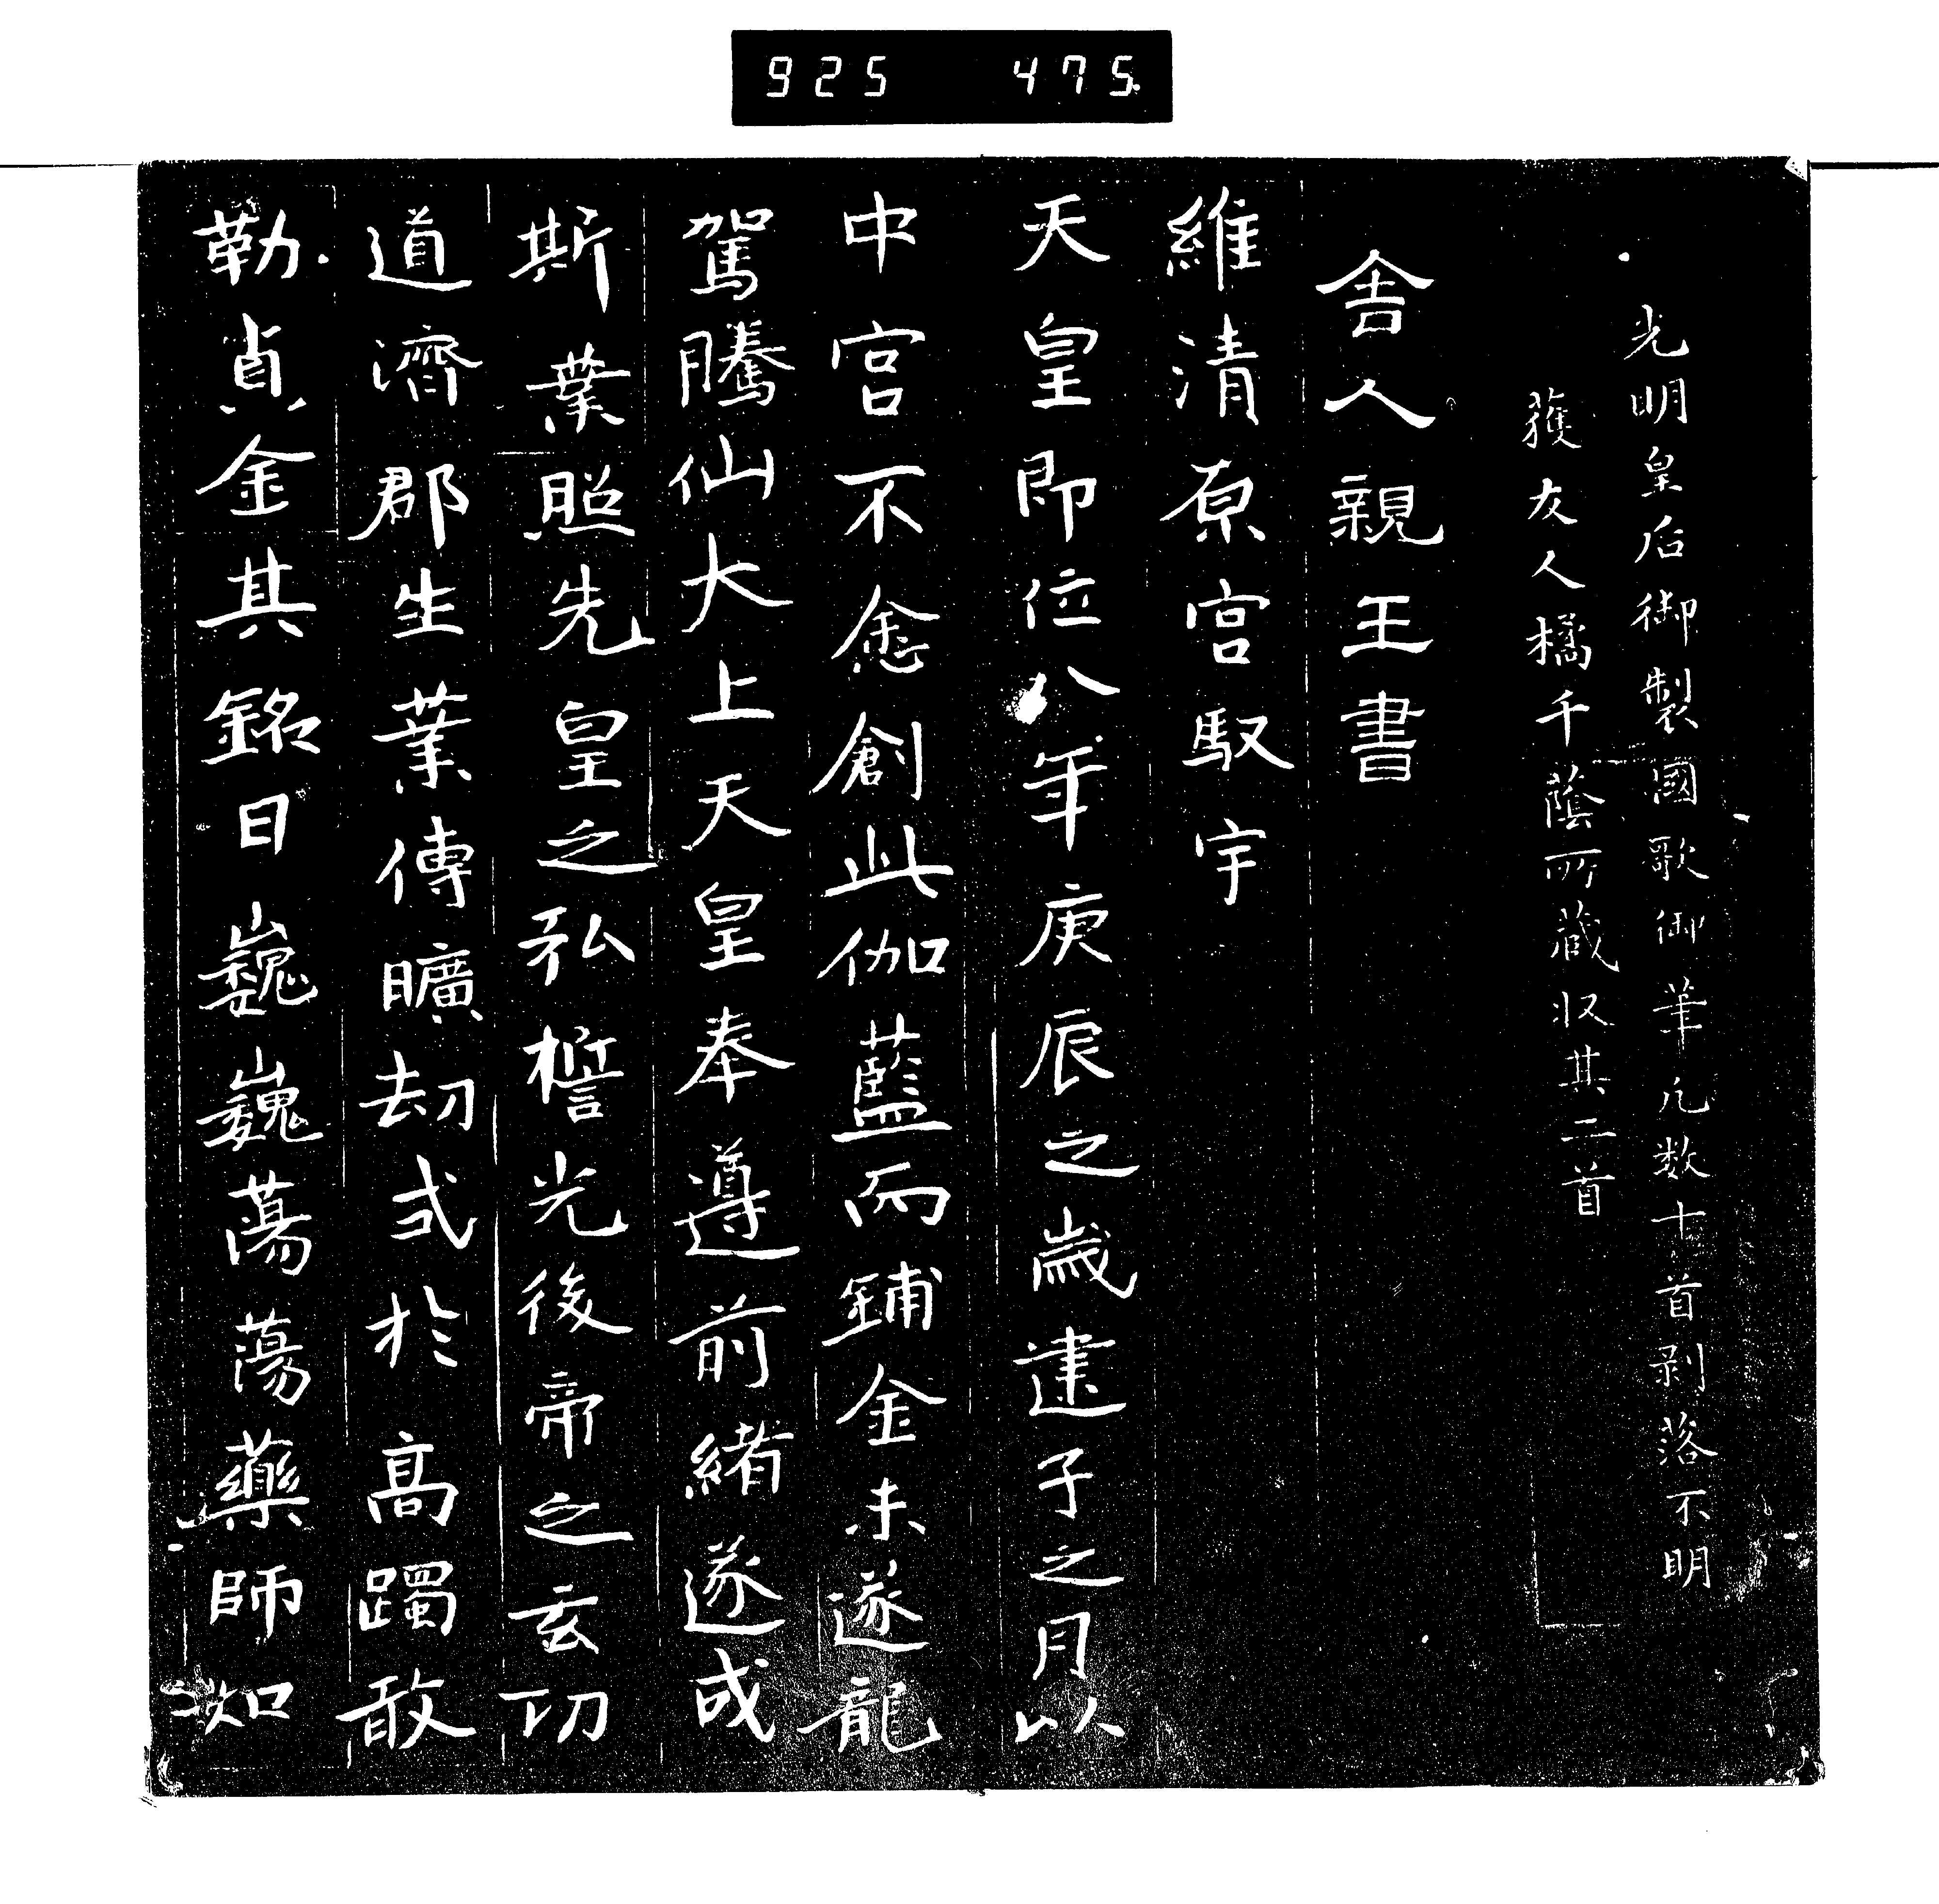 925 475
光明皇后御製國歌御筆凡数十首剥落不明
獲友人橘千蔭所蔵収其二首
舍人親王書
維清原宮馭宇
天皇即位八年庚辰之歳建子之月以
中宮不悆創此伽藍而鋪金未遂龍
駕騰仙大上天皇奉遵前緒遂成
斯業照先皇之弘誓光後帝之玄功
道濟郡生業傳曠劫式於高躅敢
勒貞金其銘曰巍巍蕩蕩藥師如